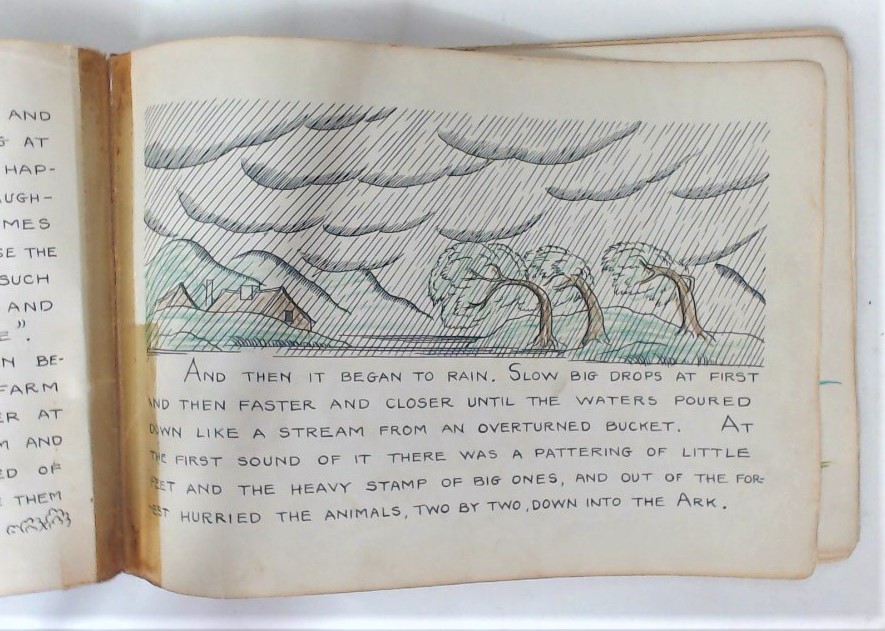 AND
AT
HAP-
AUGH-
MES
SE THE
SUCH
AND
E".
N BE-
FARM
ER AT
M AND
ED OF
THEM
AND THEN IT BEGAN TO RAIN. SLOW BIG DROPS AT FIRST
AND THEN FASTER AND CLOSER UNTIL THE WATERS POURED
DOWN LIKE A STREAM FROM AN OVERTURNED BUCKET. AT
THE FIRST SOUND OF IT THERE WAS A PATTERING OF LITTLE
FEET AND THE HEAVY STAMP OF BIG ONES, AND OUT OF THE FOR-
EST HURRIED THE ANIMALS, TWO BY TWO, DOWN INTO THE ARK.